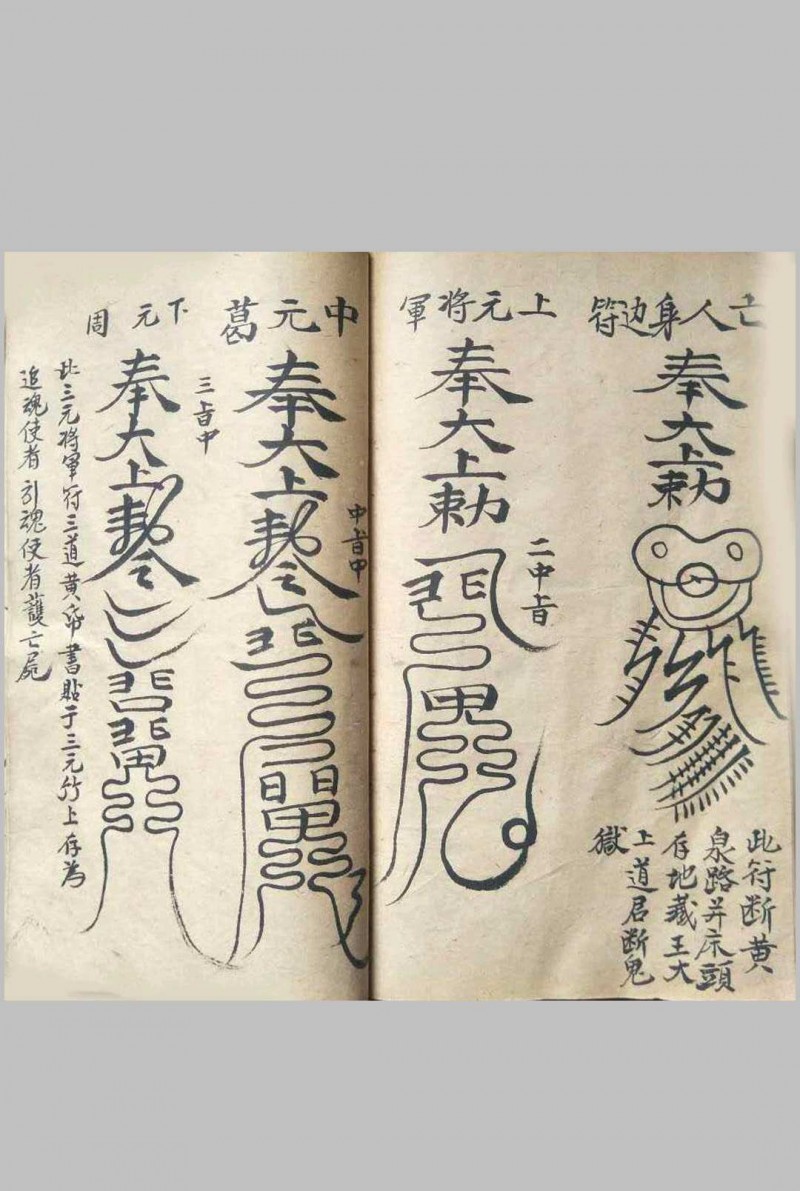 亡人身边符
奉大上勅
此符断黄
泉路并床頭
存地藏王大
上道君断鬼
獄
上元将軍
奉大上勅
二中㫖
中元葛
奉大上勅令
中㫖中
下元周
三㫖中
奉大上勅令
此三元将軍符三道黄帋書貼于三元竹上存為
追魂使者引魂使者護亡屍